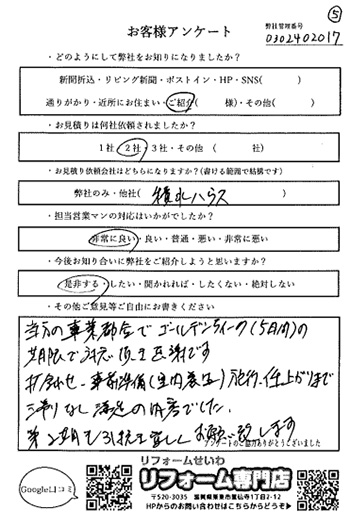 ⑤
お客様アンケート
弊社管理番号
0302402017
・どのようにして弊社をお知りになりましたか？
新聞折込・リビング新聞・ポストイン・HP・SNS( )
通りがかり・近所にお住まい・ご紹介( 様)・その他( )
・お見積りは何社依頼されましたか？
1社・2社・3社・その他 ( 社)
・お見積り依頼会社はどちらになりますか？(書ける範囲で結構です)
弊社のみ・他社( 積水ハウス )
・担当営業マンの対応はいかがでしたか？
非常に良い・良い・普通・悪い・非常に悪い
・今後お知り合いに弊社をご紹介しようと思いますか？
是非する・したい・聞かれれば・したくない・絶対しない
・その他ご意見等ご自由にお書きください
当方の事業都合でゴールデンウィーク(5日間)の
期限で対応頂き感謝です
打合わせ・事前準備(室内養生)施行・仕上がりまで
滞りなし 満足の内容でした。
第2期も引続き宜しくお願い致します
アンケートのご協力ありがとうございました
リフォームせいわ
Google口コミ
リフォーム専門店
〒520-3035 滋賀県栗東市霊仙寺1丁目2-12
HPからのお問い合わせはこちらからどうぞ▶